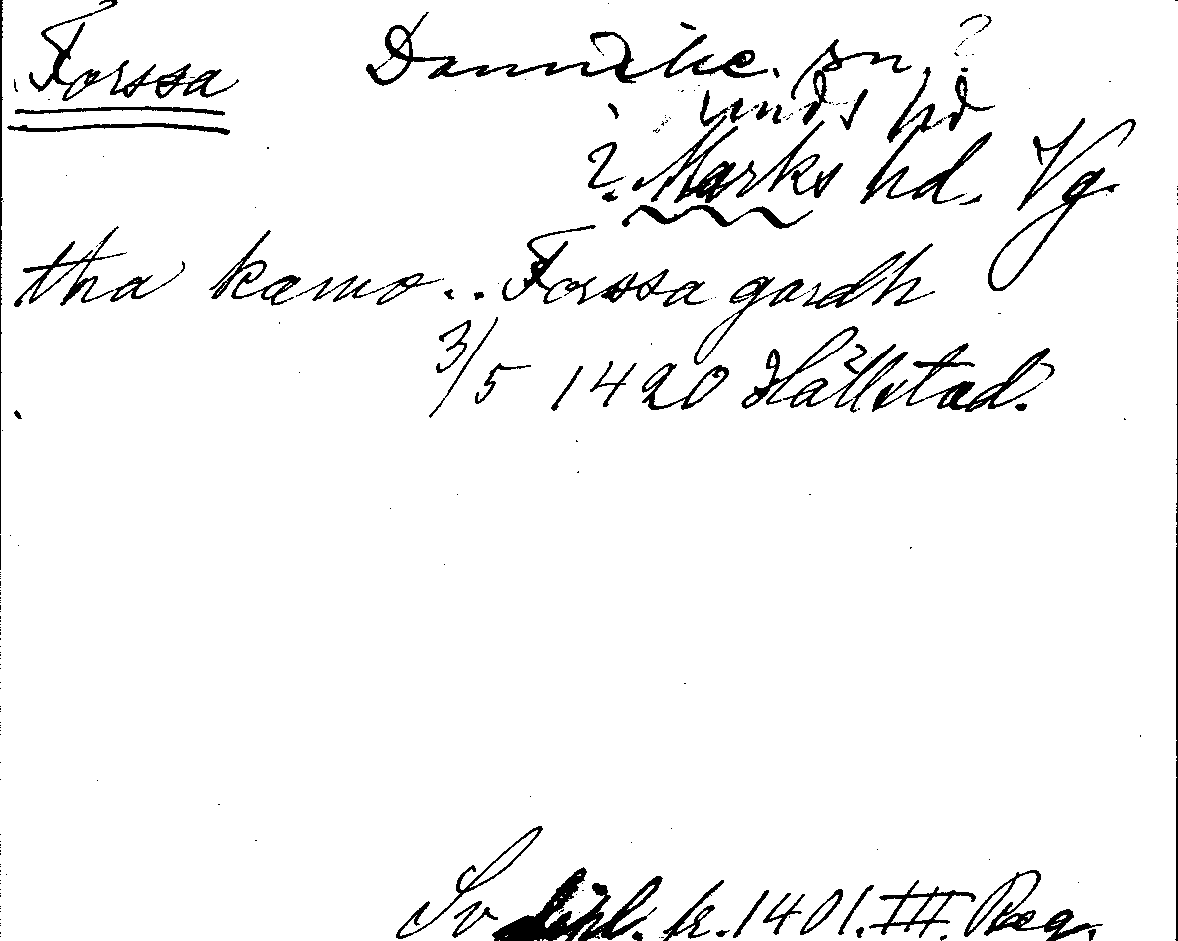 Forssa Dannike. sn. ?
hd
?. Marks hd. Vg.
tha kæmo.. Forssa gardh
3/5 1420 Hällstad.
Sv dipl. fr. 1401. III. Reg.